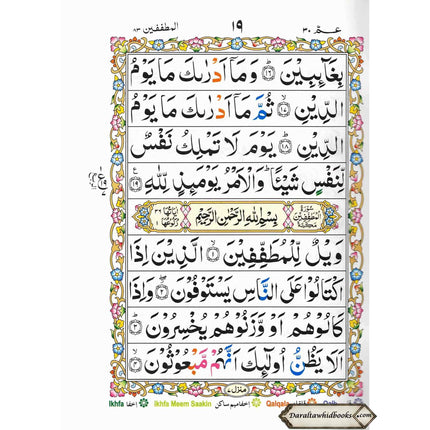 عم ٣٠
١٩
المطففين ٨٣
بِغَآئِبِيْنَ ۟ؕ ۱۶ وَمَاۤ اَدْرٰىكَ مَا يَوْمُ
الدِّيْنِ ۙ ۱۷ ثُمَّ مَاۤ اَدْرٰىكَ مَا يَوْمُ
الدِّيْنِ ؕ ۱۸ يَوْمَ لَا تَمْلِكُ نَفْسٌ
لِّنَفْسٍ شَيْئًا ؕ وَالْاَمْرُ يَوْمَئِذٍ لِّلّٰهِ ۱۹
سُوْرَةُ الْمُطَفِّفِيْنَ مَكِّيَّةٌ
بِسْمِ اللّٰهِ الرَّحْمٰنِ الرَّحِيْمِ
اٰيَاتُهَا ٣٦ رُكُوْعُهَا ١
وَيْلٌ لِّلْمُطَفِّفِيْنَ ۙ ۱ الَّذِيْنَ اِذَا
اكْتَالُوْا عَلَى النَّاسِ يَسْتَوْفُوْنَ ؗ ۲ وَاِذَا
كَالُوْهُمْ اَوْ وَّزَنُوْهُمْ يُخْسِرُوْنَ ؕ ۳
اَلَا يَظُنُّ اُولٰٓئِكَ اَنَّهُمْ مَّبْعُوْثُوْنَ ۙ ۴
منزل ٧
Ikhfa اخفا Ikhfa Meem Saakin اخفا ميم ساكن Qalqala قلقلہ Qalb
Daraltawhidbooks.com